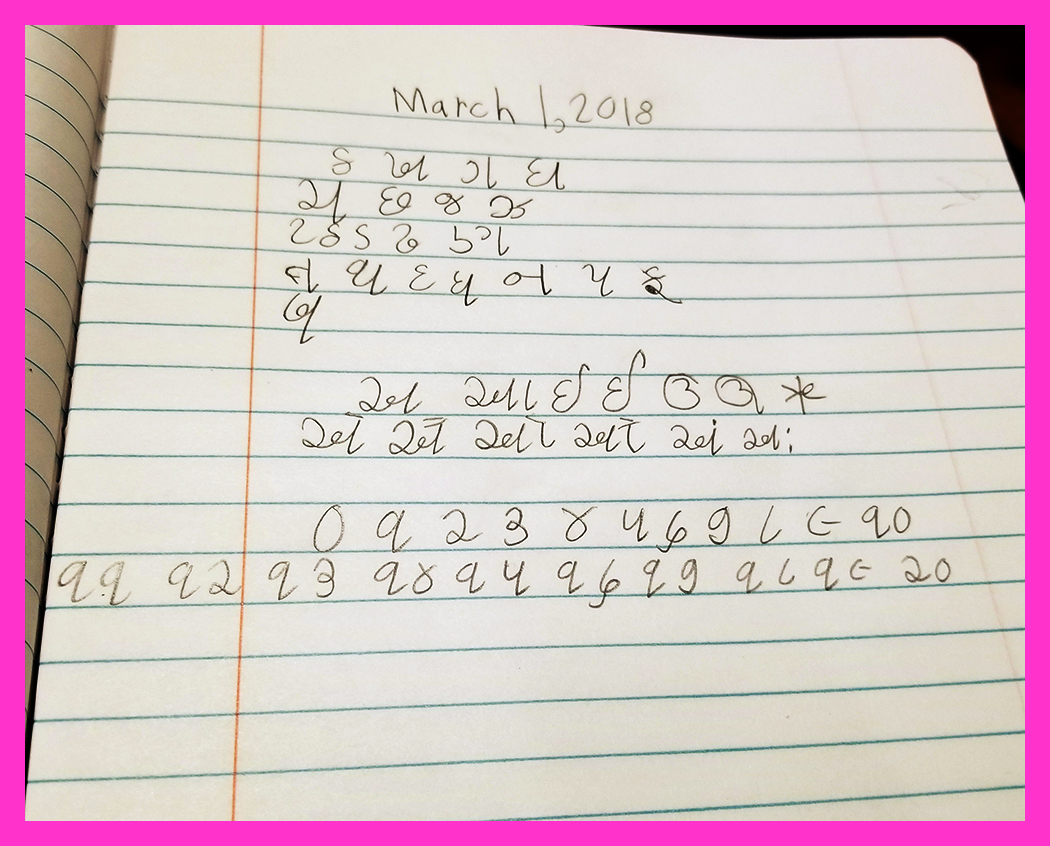 March 1, 2018
ક ખ ગ ઘ
ચ છ જ ઝ
ટ ઠ ડ ઢ ણ
ત થ દ ધ ન પ ફ
બ
અ આ ઇ ઈ ઉ ઊ ઋ
એ ઐ ઓ ઔ અં અઃ
૦ ૧ ૨ ૩ ૪ ૫ ૬ ૭ ૮ ૯ ૧૦
૧૧ ૧૨ ૧૩ ૧૪ ૧૫ ૧૬ ૧૭ ૧૮ ૧૯ ૨૦